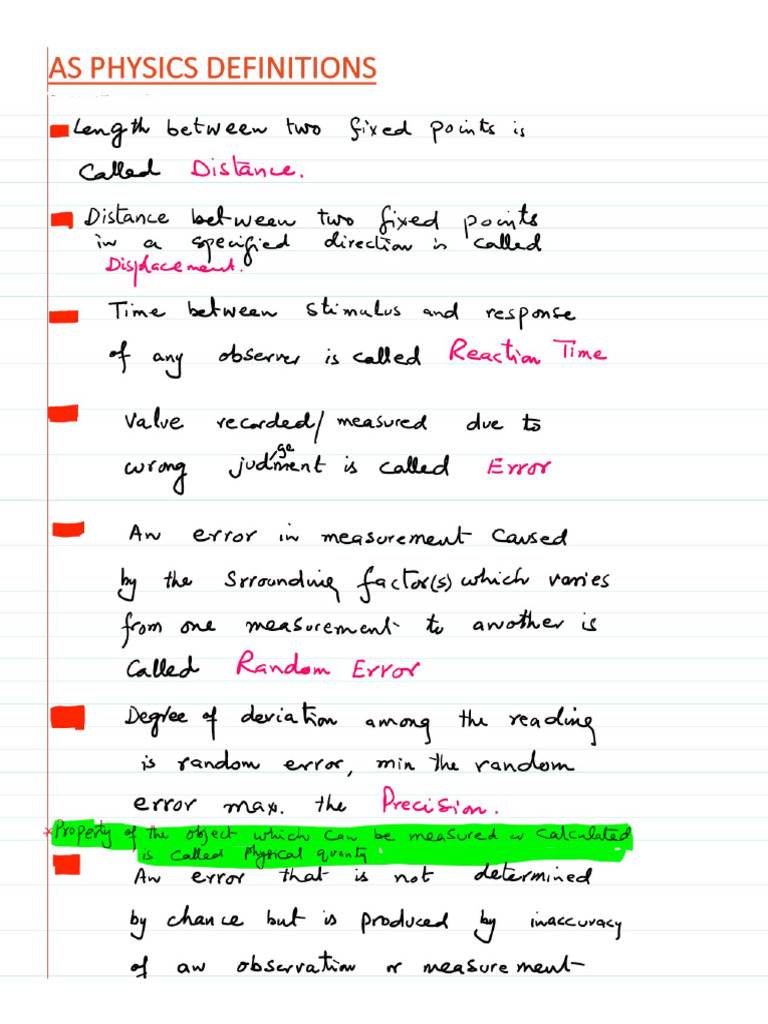 AS PHYSICS DEFINITIONS
Length between two fixed points is
called Distance.
Distance between two fixed points
in a specified direction is called
Displacement.
Time between stimulus and response
of any observer is called Reaction Time
Value recorded/measured due to
wrong judgement is called Error
An error in measurement caused
by the Srrounding factor(s) which varies
from one measurement to another is
called Random Error
Degree of deviation among the reading
is random error, min the random
error max. the Precision.
*Property of the object which can be measured or calculated
is called Physical quanty
An error that is not determined
by chance but is produced by inaccuracy
of an observation or measurement